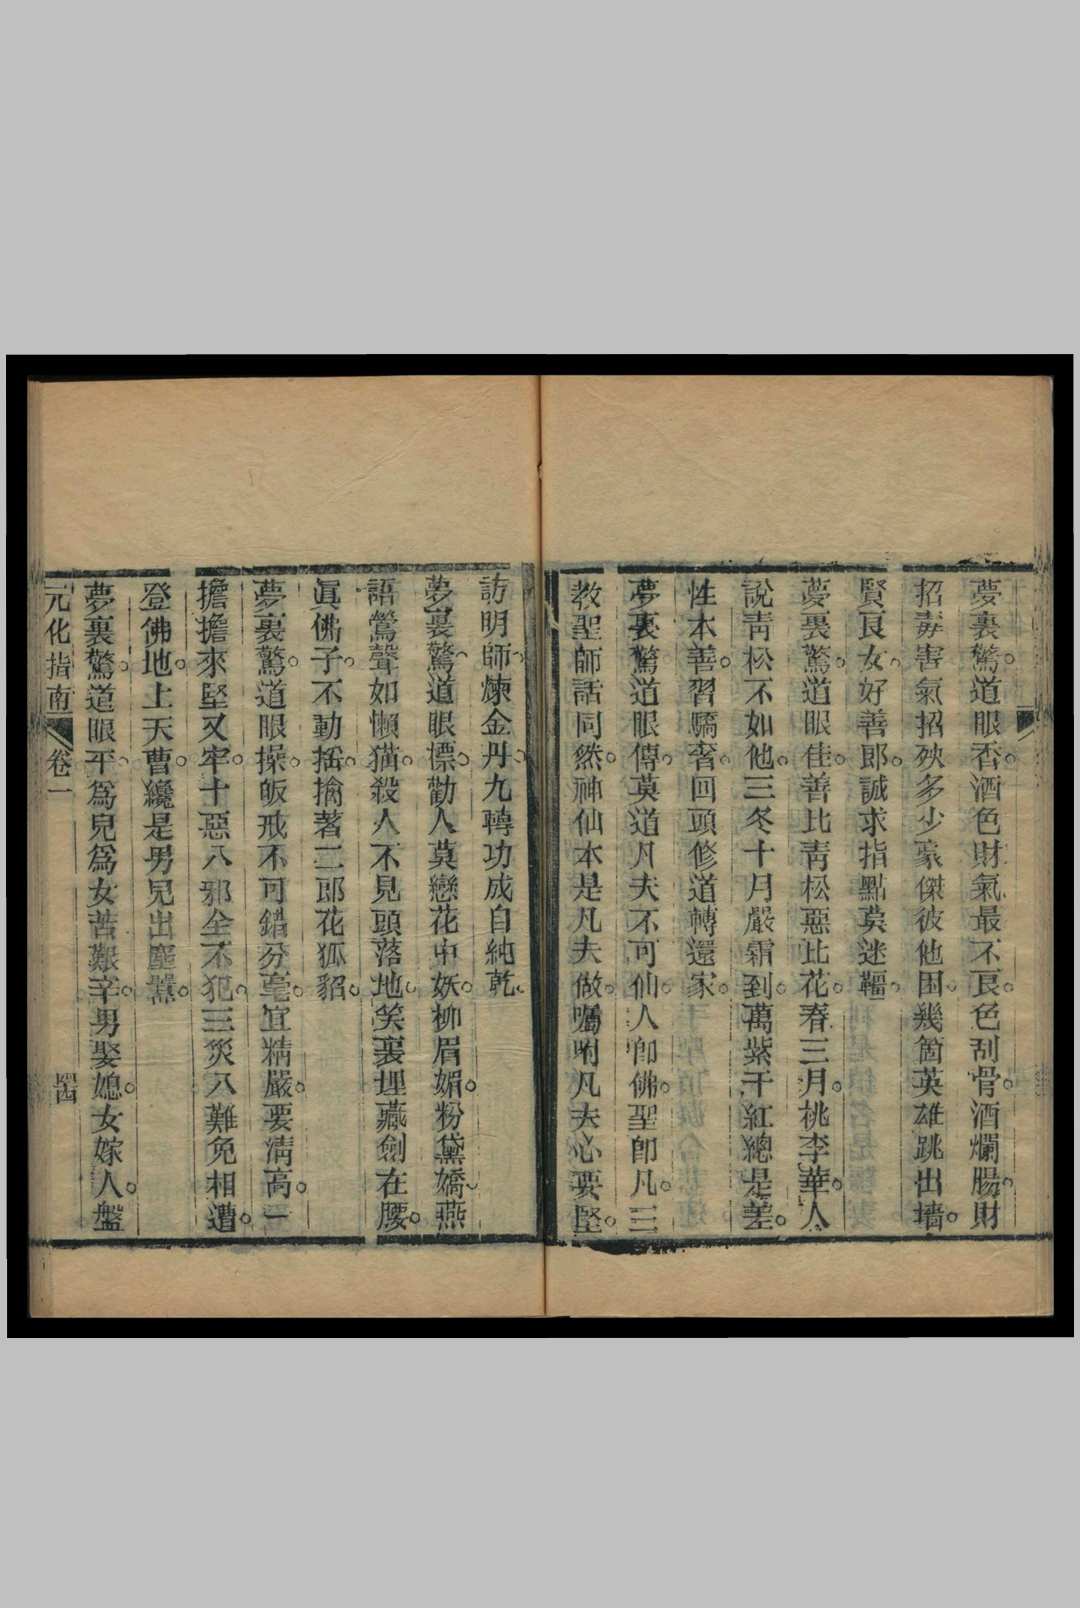 夢裏驚道眼香酒色財氣最不良色刮骨酒爛腸財
招毒害氣招殃多少豪傑彼他困幾箇英雄跳出墻
賢良女好善郎誠求指點莫迷韁
夢裏驚道眼佳善比靑松惡比花春三月桃李華人人
說靑松不如他三冬十月嚴霜到萬紫千紅總是差
性本善習驕奢回頭修道轉還家
夢裏驚道眼傳莫道凡夫不可仙人卽佛聖卽凡三
教聖師話同然神仙本是凡夫做囑咐凡夫心要堅
訪明師煉金丹九轉功成自純乾
夢裏驚道眼慓勸人莫戀花中妖柳眉媚粉黛嬌燕
語鶯聲如懶猫殺人不見頭落地笑裏埋藏劍在腰
眞佛子不動搖擒著二郎花狐貂
夢裏驚道眼操皈戒不可錯分毫宜精嚴要淸高一
擔擔來堅又牢十惡八邪全不犯三災八難免相遭
登佛地上天曹纔是男兒出塵囂
夢裏驚道眼平爲兒爲女苦艱辛男娶媳女嫁人盤
元化指南 卷一 四